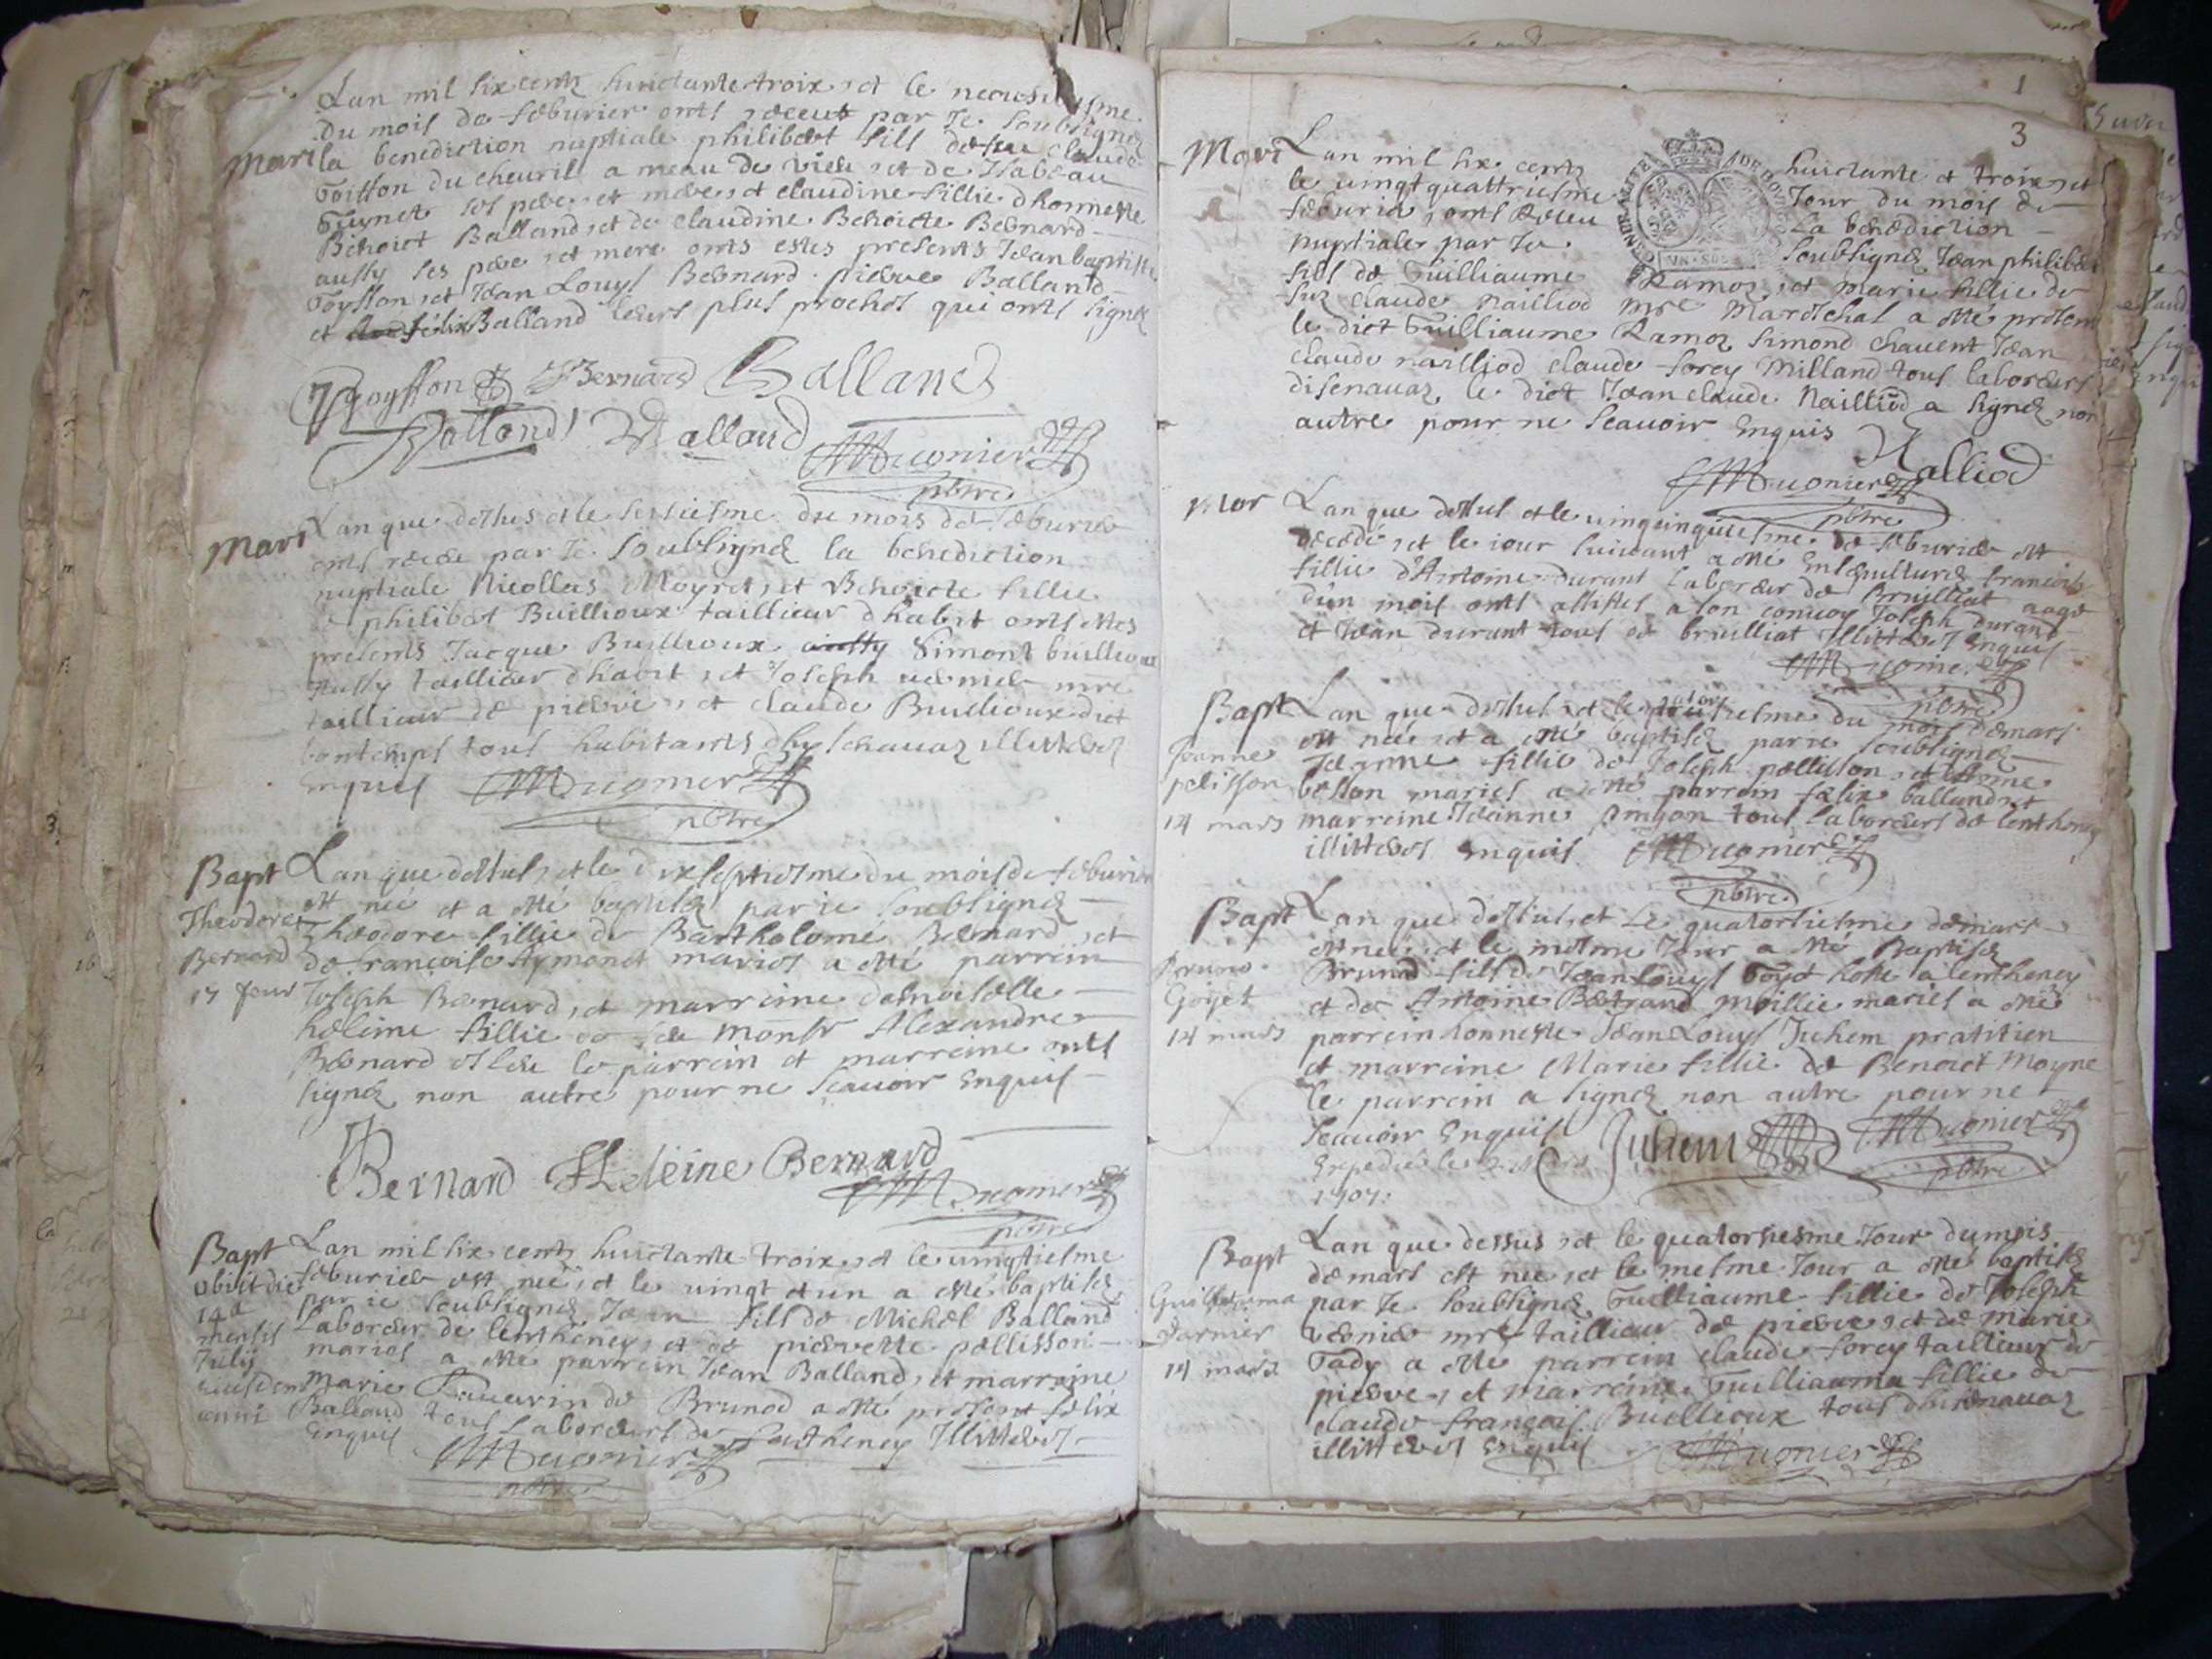 Lan mil six centz huictante troix, et le neufuiesme
du mois de feburier onts receut par Je soubsignez
Mari la benediction nuptiale philibert fils de feu claude
Goisson du cheuril a meau de vieu, et de Isabeau
ses pere et mere, et claudine fillie dhonneste
Benoict Balland, et de claudine Benoicte Bernard
aussy ses pere, et mere onts estes presents Jean baptiste
Goysson, et Jean Louys Bernard, pierre Balland
et felix Balland leurs plus proches qui onts signez
Goysson Bernard Balland
Balland Balland Mugnier
pbtre
Mari Lan que dessus et le sesiesme du mois de feburier
onts receu par Je soubsignez la benediction
nuptiale Nicollas Moyret, et Benoicte fillie
philibert Buillioux taillieur dhabit onts estes
presents Jacque Buillioux aussy Simont buillioux
aussy taillieur dhabit, et Joseph mre
taillieur de pierre, et claude Buillioux dict
tous habitants illitteres
Enquis Mugnier
pbtre
Bapt Lan que dessus, et le dixseptiesme du mois de feburier
est née et a esté baptisez par ie soubsignez
Theodore Theodore fillie de Bartholome Bernard, et
Bernard de francoise Aymonet maries a esté parrein
17 feur Joseph Bernard, et marreine damoiselle
heleine fillie de feu Monsr Alexandre
Bernard le parrein et marreine onts
signez non autre pour ne scauoir Enquis
Bernard Heleine Bernard
Mugnier
pbtre
Bapt Lan mil six centz huictante troix, et le uingtiesme
obiit die feburier est née, et le uingt et un a esté baptisez
14a par ie soubsignez Jean fils de Michel Balland
mensis Laboreur de lentheney, et de pierrette pellisson
Julij maries a esté parrein Jean Balland, et marreine
eiusdem Marie de Brunod a esté present felix
anni Balland tous laboreurs de Lentheney Illitteres
Enquis Mugnier
pbtre
1
3
Mari Lan mil six centz huictante et troix, et
le uingt quattriesme Jour du mois de
feburier, onts Receu La benediction
nuptiale par Je soubsignez Jean philibert
fils de Guilliaume Ramoz, et marie fillie de
feu claude nailliod mre Mareschal a esté present
le dict Guilliaume Ramoz simond chauent Jean
claude nailliod claude forey Milland tous laboreurs
disenauaz, le dict Jean claude Nailliod a signez non
autre pour ne scauoir Enquis Nalliod
Mugnier
pbtre
Mor Lan que dessus et le uinquinquiesme de feburier est
decedé, et le iour suiuant a esté Ensepulturez francoise
fillie d'Antoine durant laboreur de Brullliat aage
dun mois onts assistes a son conuoy Joseph durand
et Jean durant tous de brulliat Illitteres Enquis
Mugnier
pbtre
Bapt Lan que dessus, et le du mois de mars
est née, et a esté baptisez par ie soubsignez
Jeanne Jeanne fillie de Joseph pellisson, et Anne
pelisson maries a esté parrein felix balland, et
14 mars marreine Jeanne tous laboreurs de lentheney
illitteres Enquis Mugnier
pbtre
Bapt Lan que dessus, et Le quatorsiesme de mars
est née, et le mesme Jour a esté Baptisez
Bruno Brunod fils de Jean Louys Goyet hoste a lentheney
Goyet et de Antoine Bertrand Moillie maries a esté
14 mars parrein honneste Jean Louys Juhem pratitien
et marreine Marie fillie de Benoict Moyne
le parrein a signez non autre pour ne
scauoir Enquis Juhem Mugnier
Expedié le pbtre
1707.
Bapt Lan que dessus, et le quatorsiesme Jour du mois
de mars est née, et le mesme Jour a esté baptisez
Guillauma par Je soubsignez Guilliaume fillie de Joseph
mre taillieur de pierre, et de marie
14 mars Tady a esté parrein claude forey taillieur de
pierre, et marreine Guilliauma fillie de
claude francois Buillioux tous
illitteres Enquis Mugnier